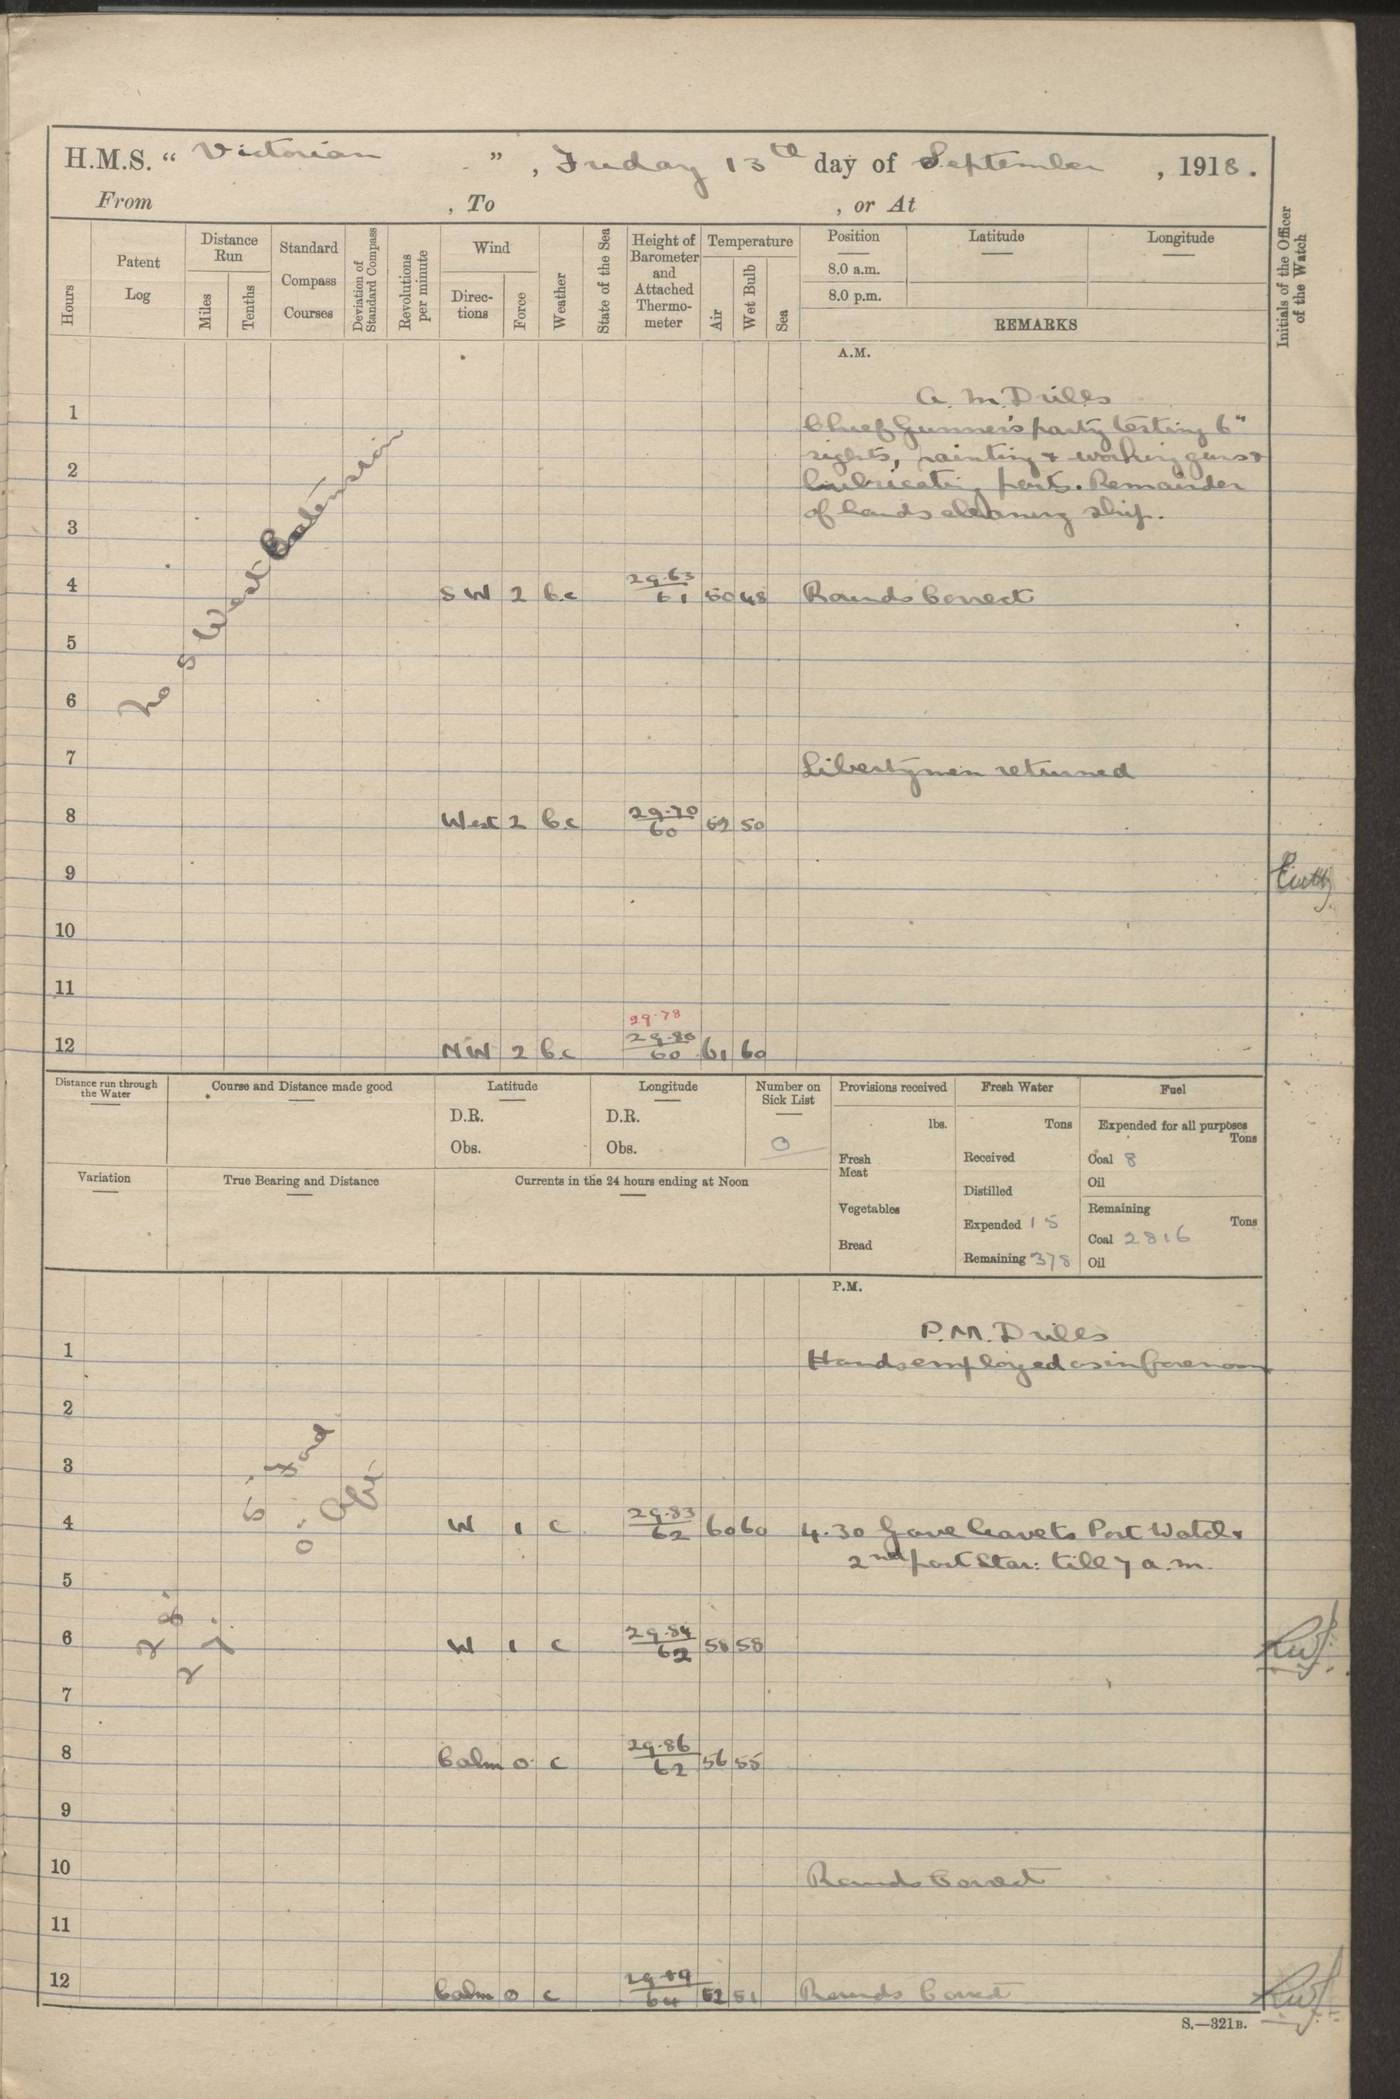 H.M.S. “ Victorian ” , Friday 13th day of September , 1918.
From , To , or At
Hours
Patent Log
Distance Run
Miles
Tenths
Standard Compass Courses
Deviation of Standard Compass
Revolutions per minute
Wind
Directions
Force
Weather
State of the Sea
Height of Barometer and Attached Thermometer
Temperature
Air
Wet Bulb
Sea
Position
8.0 a.m.
8.0 p.m.
Latitude
Longitude
REMARKS
Initials of the Officer of the Watch
A.M.
A.M. Drills
1
Chief Gunner's party testing 6"
sights, painting & working guns &
2
lubricating parts. Remainder
of hands cleaning ship.
3
No S West Extension
4 SW 2 b.c 29.63 61 50 48 Rounds Correct
5
6
7 Libertymen returned
8 West 2 b.c 29.70 60 52 50
9
10
11
29.78
12 NW 2 b.c 29.80 60 61 60
Distance run through the Water
Course and Distance made good
Latitude
D.R.
Obs.
Longitude
D.R.
Obs.
Number on Sick List
0
Provisions received
lbs.
Fresh Meat
Vegetables
Bread
Fresh Water
Tons
Received
Distilled
Expended 15
Remaining 378
Fuel
Expended for all purposes
Tons
Coal 8
Oil
Remaining
Tons
Coal 2816
Oil
Variation
True Bearing and Distance
Currents in the 24 hours ending at Noon
P.M.
P.M. Drills
1 Hands employed as in forenoon
2
3
28. 5. Ford
27. 0. Aft
4 W 1 c 29.83 62 60 60 4.30 Gave leave to Port Watch &
2nd part Star: till 7 a.m.
5
6 W 1 c 29.84 62 58 58
7
8 Calm 0 c 29.86 62 56 55
9
10 Rounds Correct
11
12 Calm 0 c 29.89 64 52 51 Rounds Correct
S.—321B.